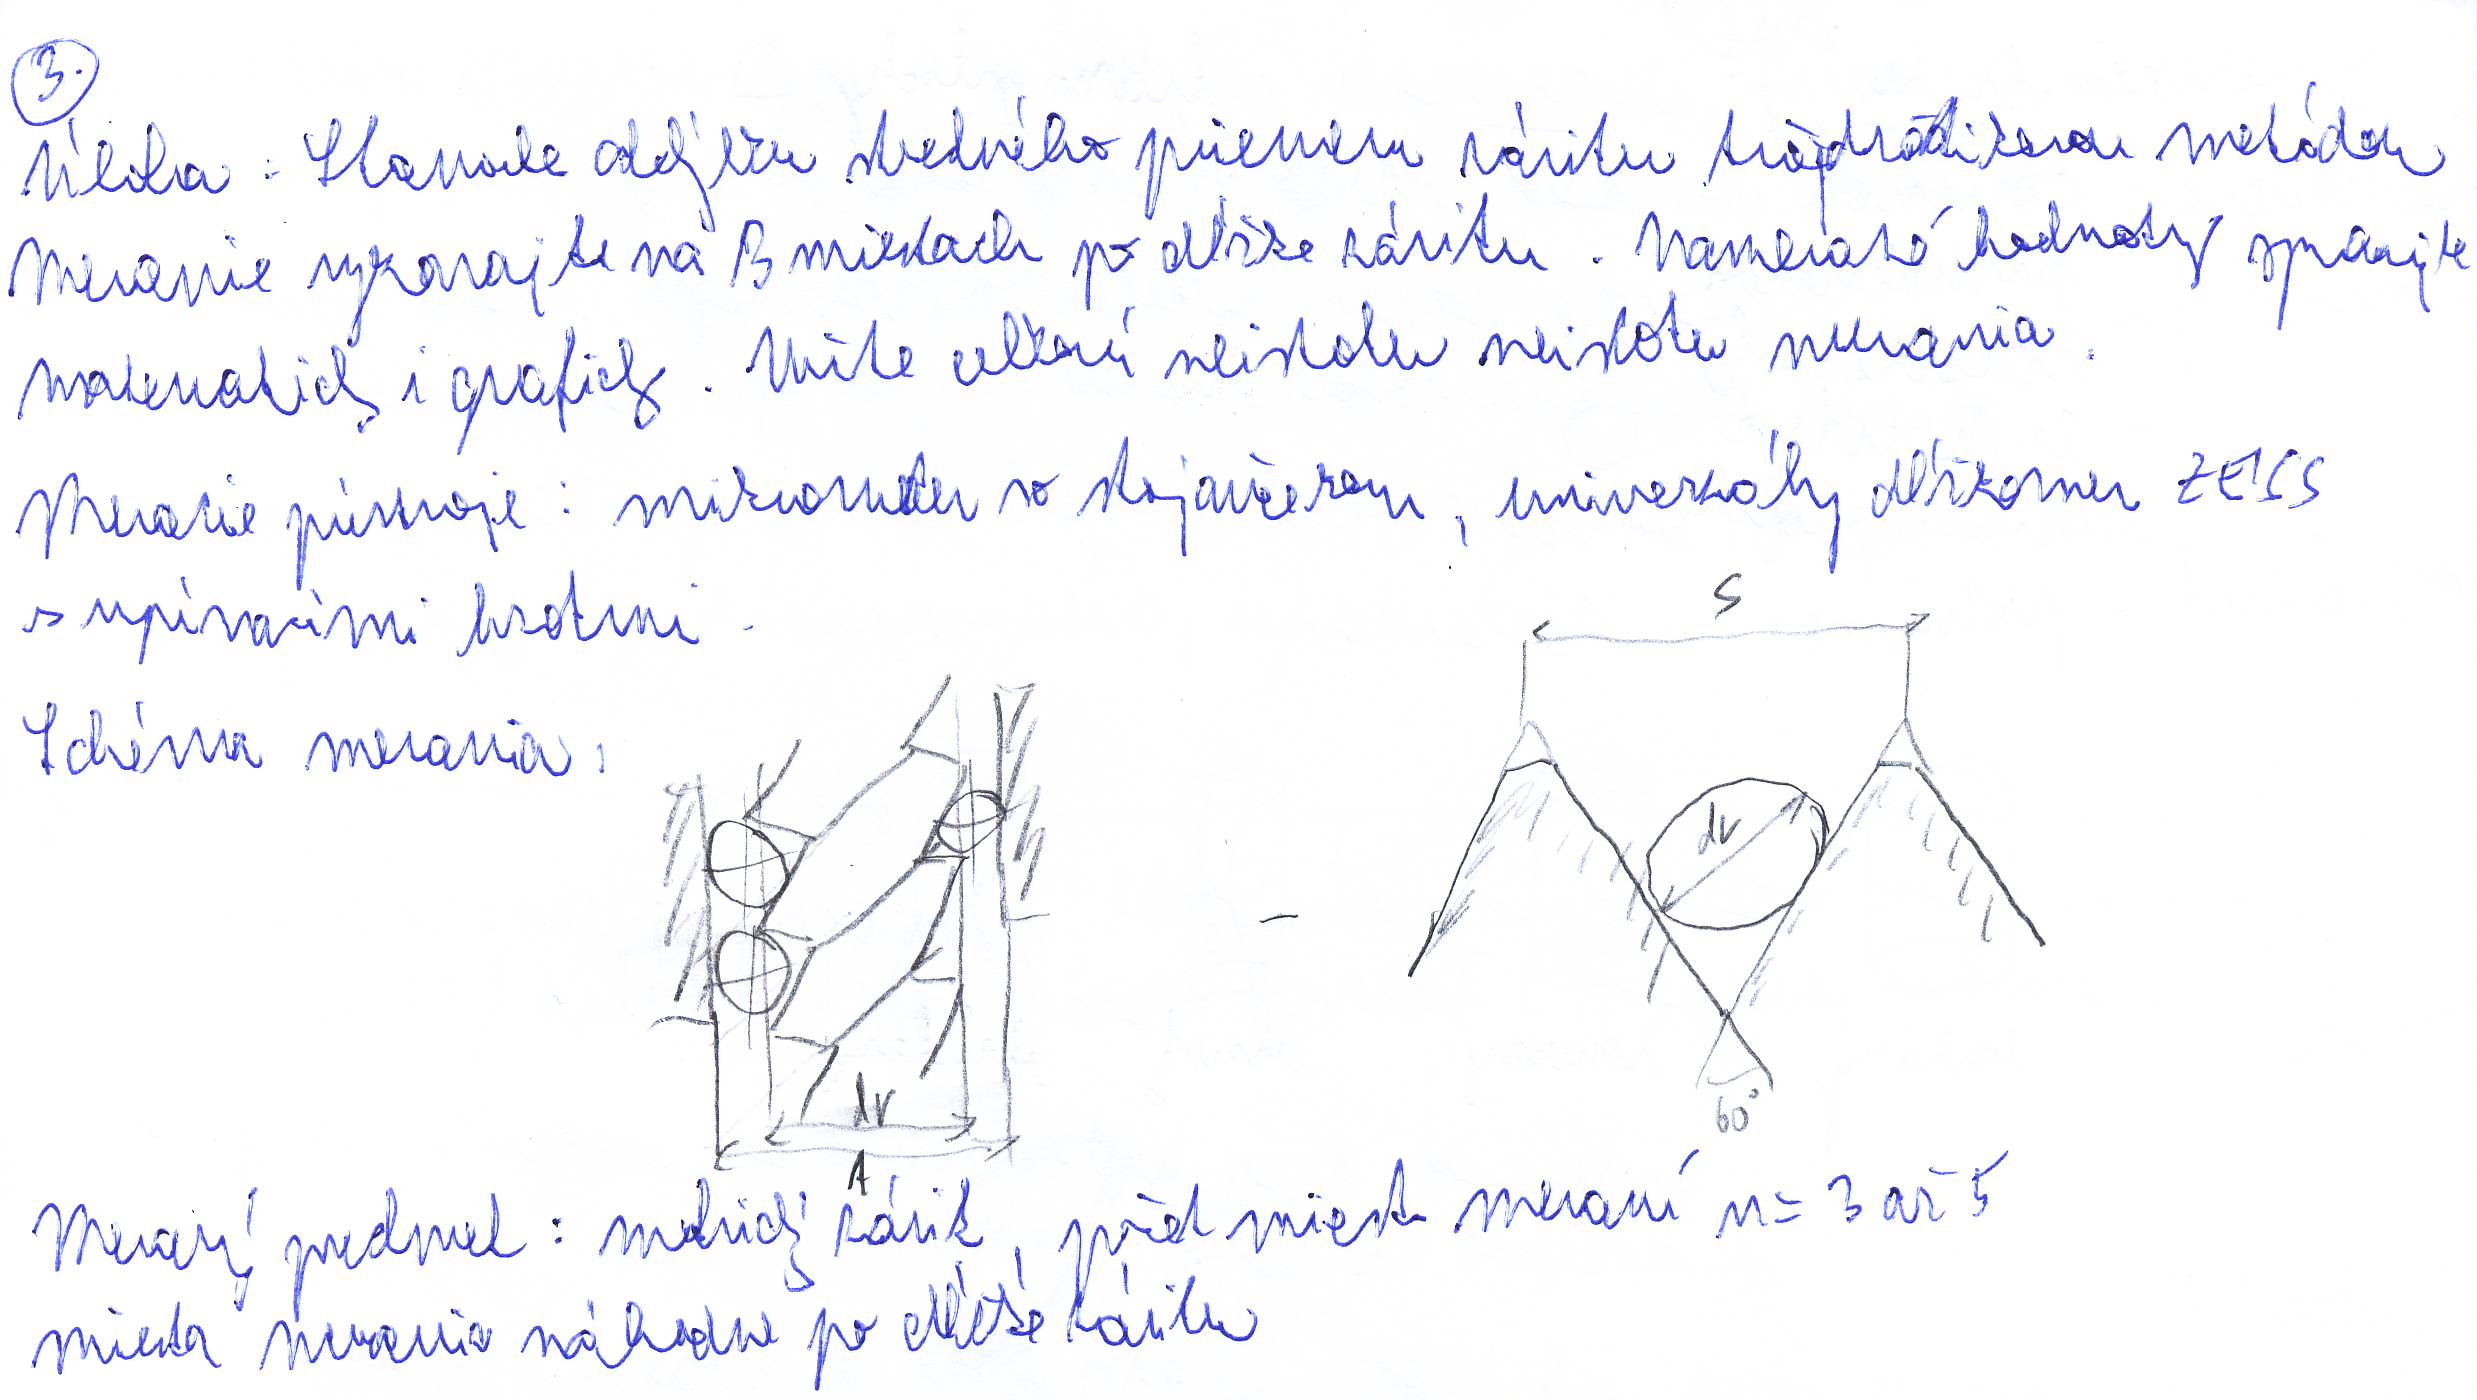 3.
Úloha : Stanovte odchýlku stredného priemeru závitu trojdrôtikovou metódou
Meranie vykonajte na 3 miestach po dĺžke závitu . Namerané hodnoty spracujte
matematicky i graficky . Určte celkovú neistotu neistotu merania .
Meracie prístroje : mikrometer so stojančekom , univerzálny dĺžkomer ZEISS
s upínacími hrotmi .
Schéma merania :
S
dr
60°
dr
A
Meraný predmet : metrický závit , počet miest meraní n = 3 až 5
miesta merania náhodne po dĺžke závitu